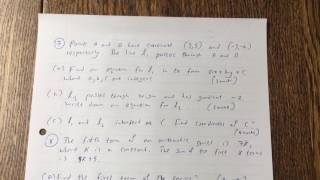 ⑦ Points A and B have coordinates (3,5) and
respectively. The line l₁ passes through A and B
(a) Find an equation for l₁ in the form ax + by + c
where a, b, c are integers
(b) l₂ passes through origin and has gradient
write down an equation for l₂
(c) l₁ and l₂ intersect at C find coordinates of C
⑧ The fifth term of an arithmetic series is 7k,
where k is a constant. The sum of first 8 terms
is
(a) find the first term of the series